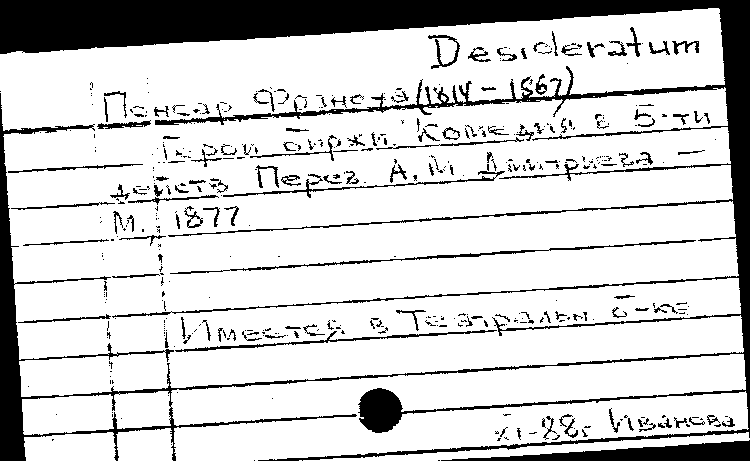 Desideratum
Понсар, Франсуа (1814-1867)
Герои биржи. Комедия в 5-ти
действ. Перев. А.М. Дмитриева –
М., 1877
Имеется в Театральн. б-ке
XI-88г Иванова